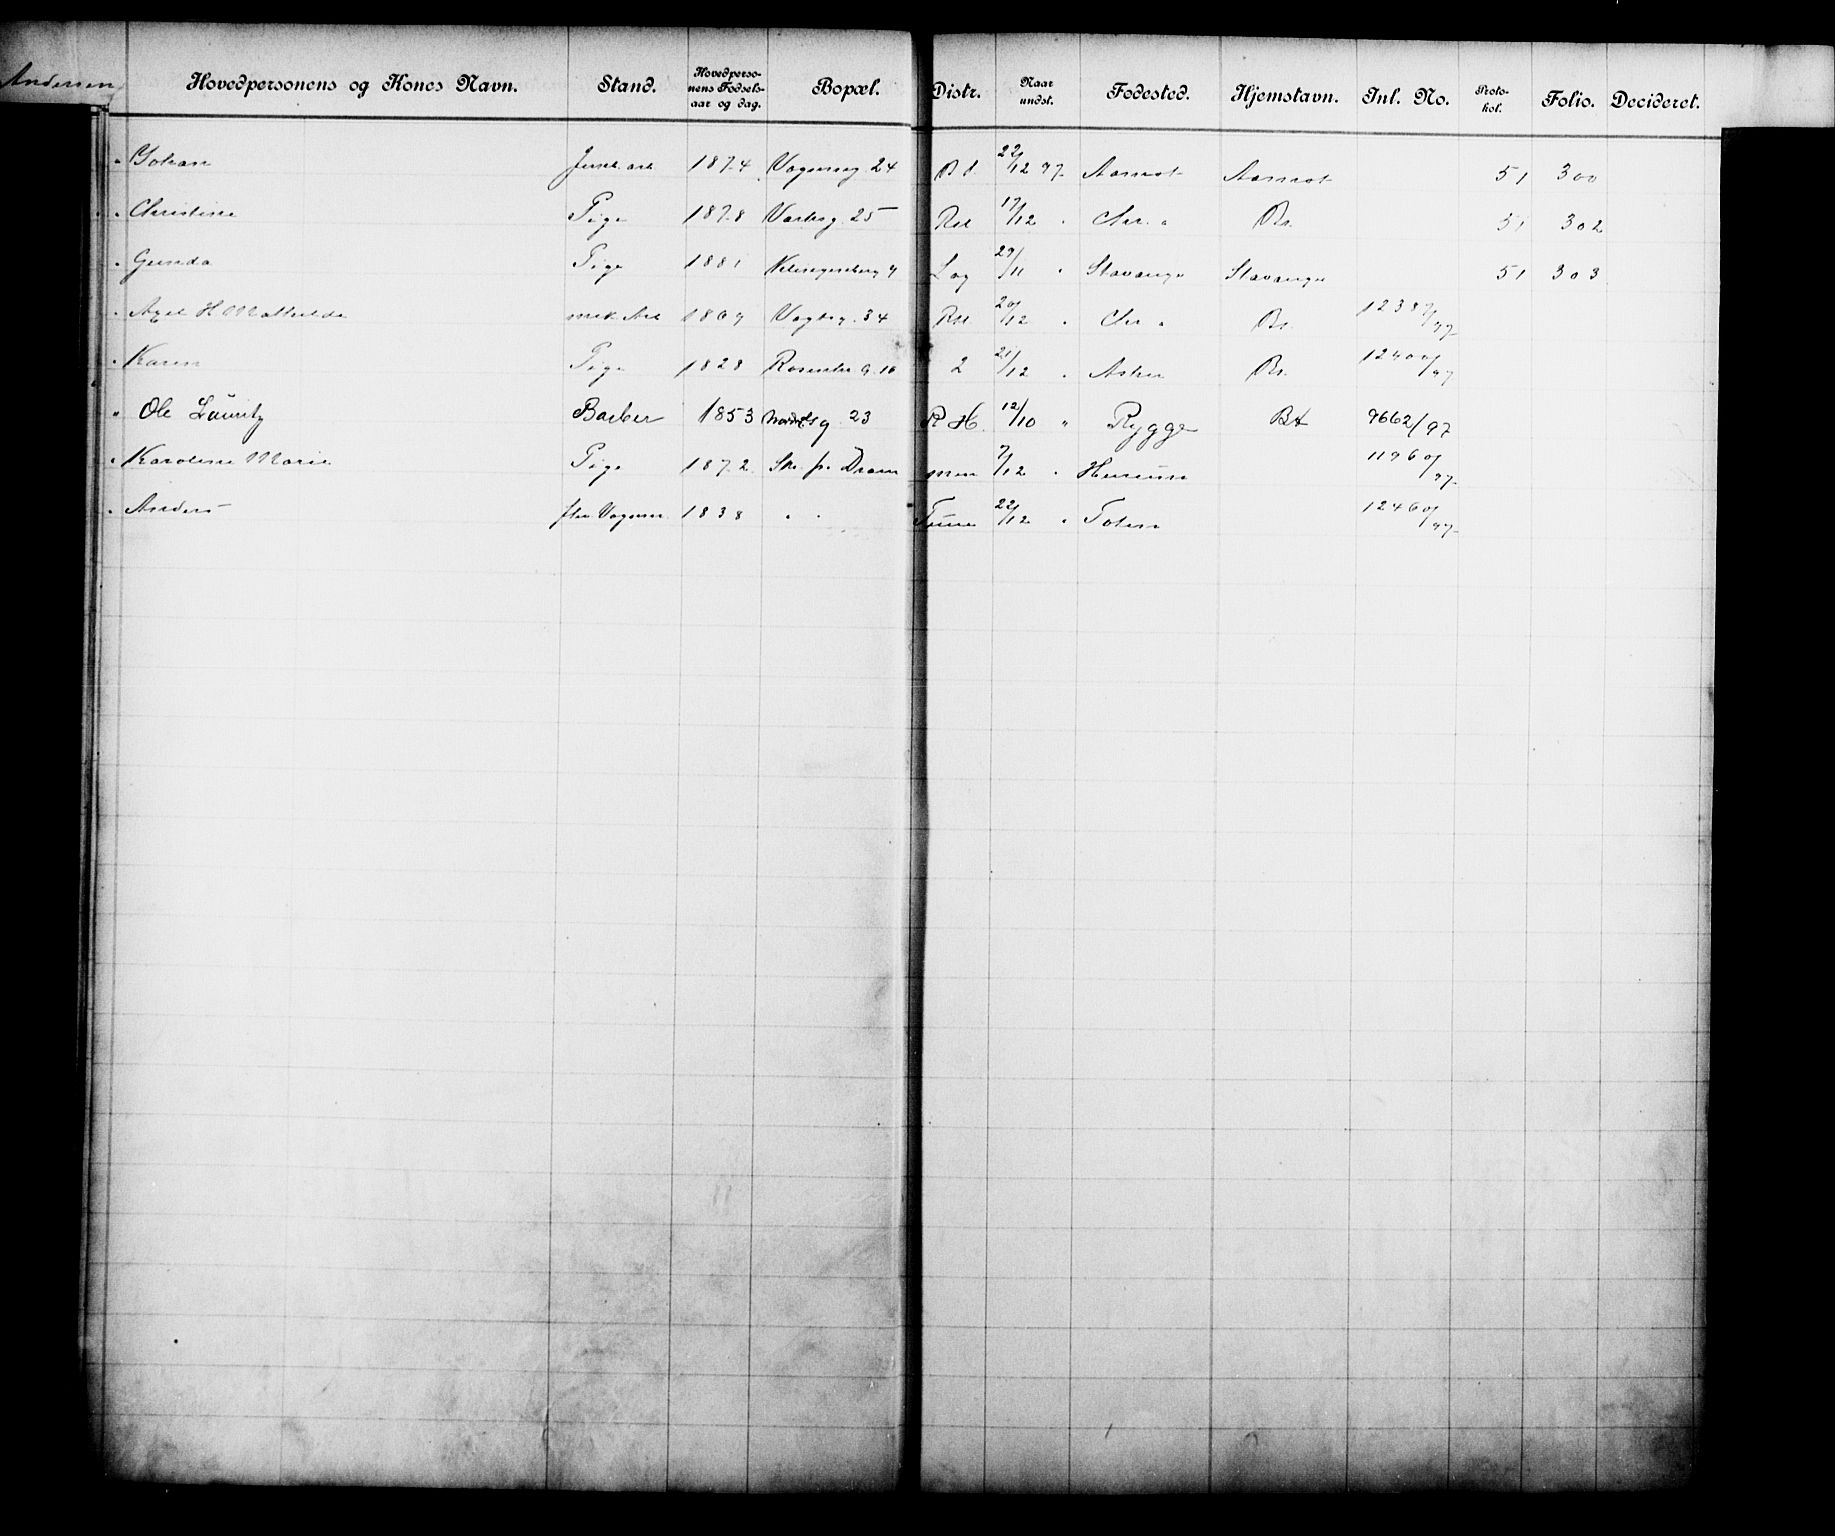 Andersen
Hovedpersonens og Kones Navn. Stand. Hovedpersonens Fødselsaar og dag. Bopæl. Distr. Naar undst. Fødested. Hjemstavn. Inl. No. Protokol. Folio. Decideret.
" Johan 1874 Vognmsg 24 22/12 97 Aamot Aamot 51 300
" Christine Pige 1878 25 17/12 " Chr. a Bs. 51 302
" Gunda Pige 1881 Log 29/11 " Stavanger Stavanger 51 303
" Axel H Mathilde mek Arb 1869 34 20/12 " Chr a Bs. 12387/97
" Karen Pige 1828 Rosenkr g. 16 2 21/12 " Asker Bs. 12400/97
" Ole Lauritz Barber 1853 23 R H. 12/10 " Rygge Bs 9662/97
" Karoline Marie Pige 1872 Dram men 7/12 " Hurum 11960/97
" Anders 1838 " " Tune 22/12 " Toten 12460/97